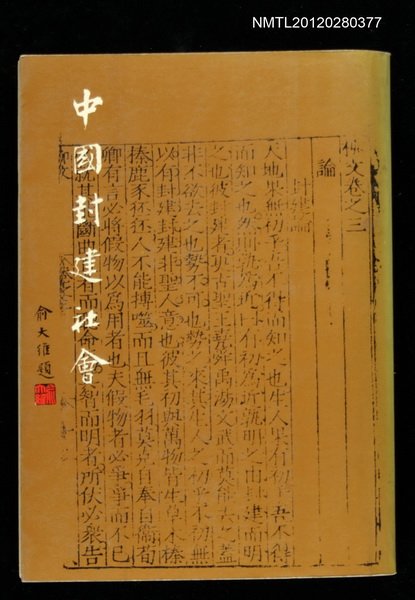 NMTL20120280377
中國封建社會
俞大維題
柳文卷之三
論
封建論
天地果無初乎吾不得而知之也生人果有初乎吾不得
而知之也然則孰為近曰有初為近孰明之由封建而明
之也彼封建者更古聖王堯舜禹湯文武而莫能去之蓋
非不欲去之也勢不可也勢之來其生人之初乎不初無
以有封建封建非聖人意也彼其初與萬物皆生草木榛
榛鹿豕狉狉人不能搏噬而且無毛羽莫克自奉自衛荀
卿有言必將假物以為用者也夫假物者必爭爭而不已
智而明者所伏必衆告